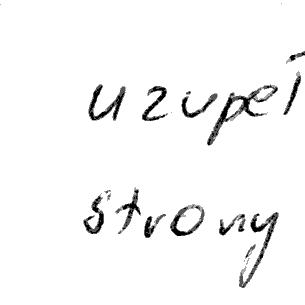 uzupeł
strony